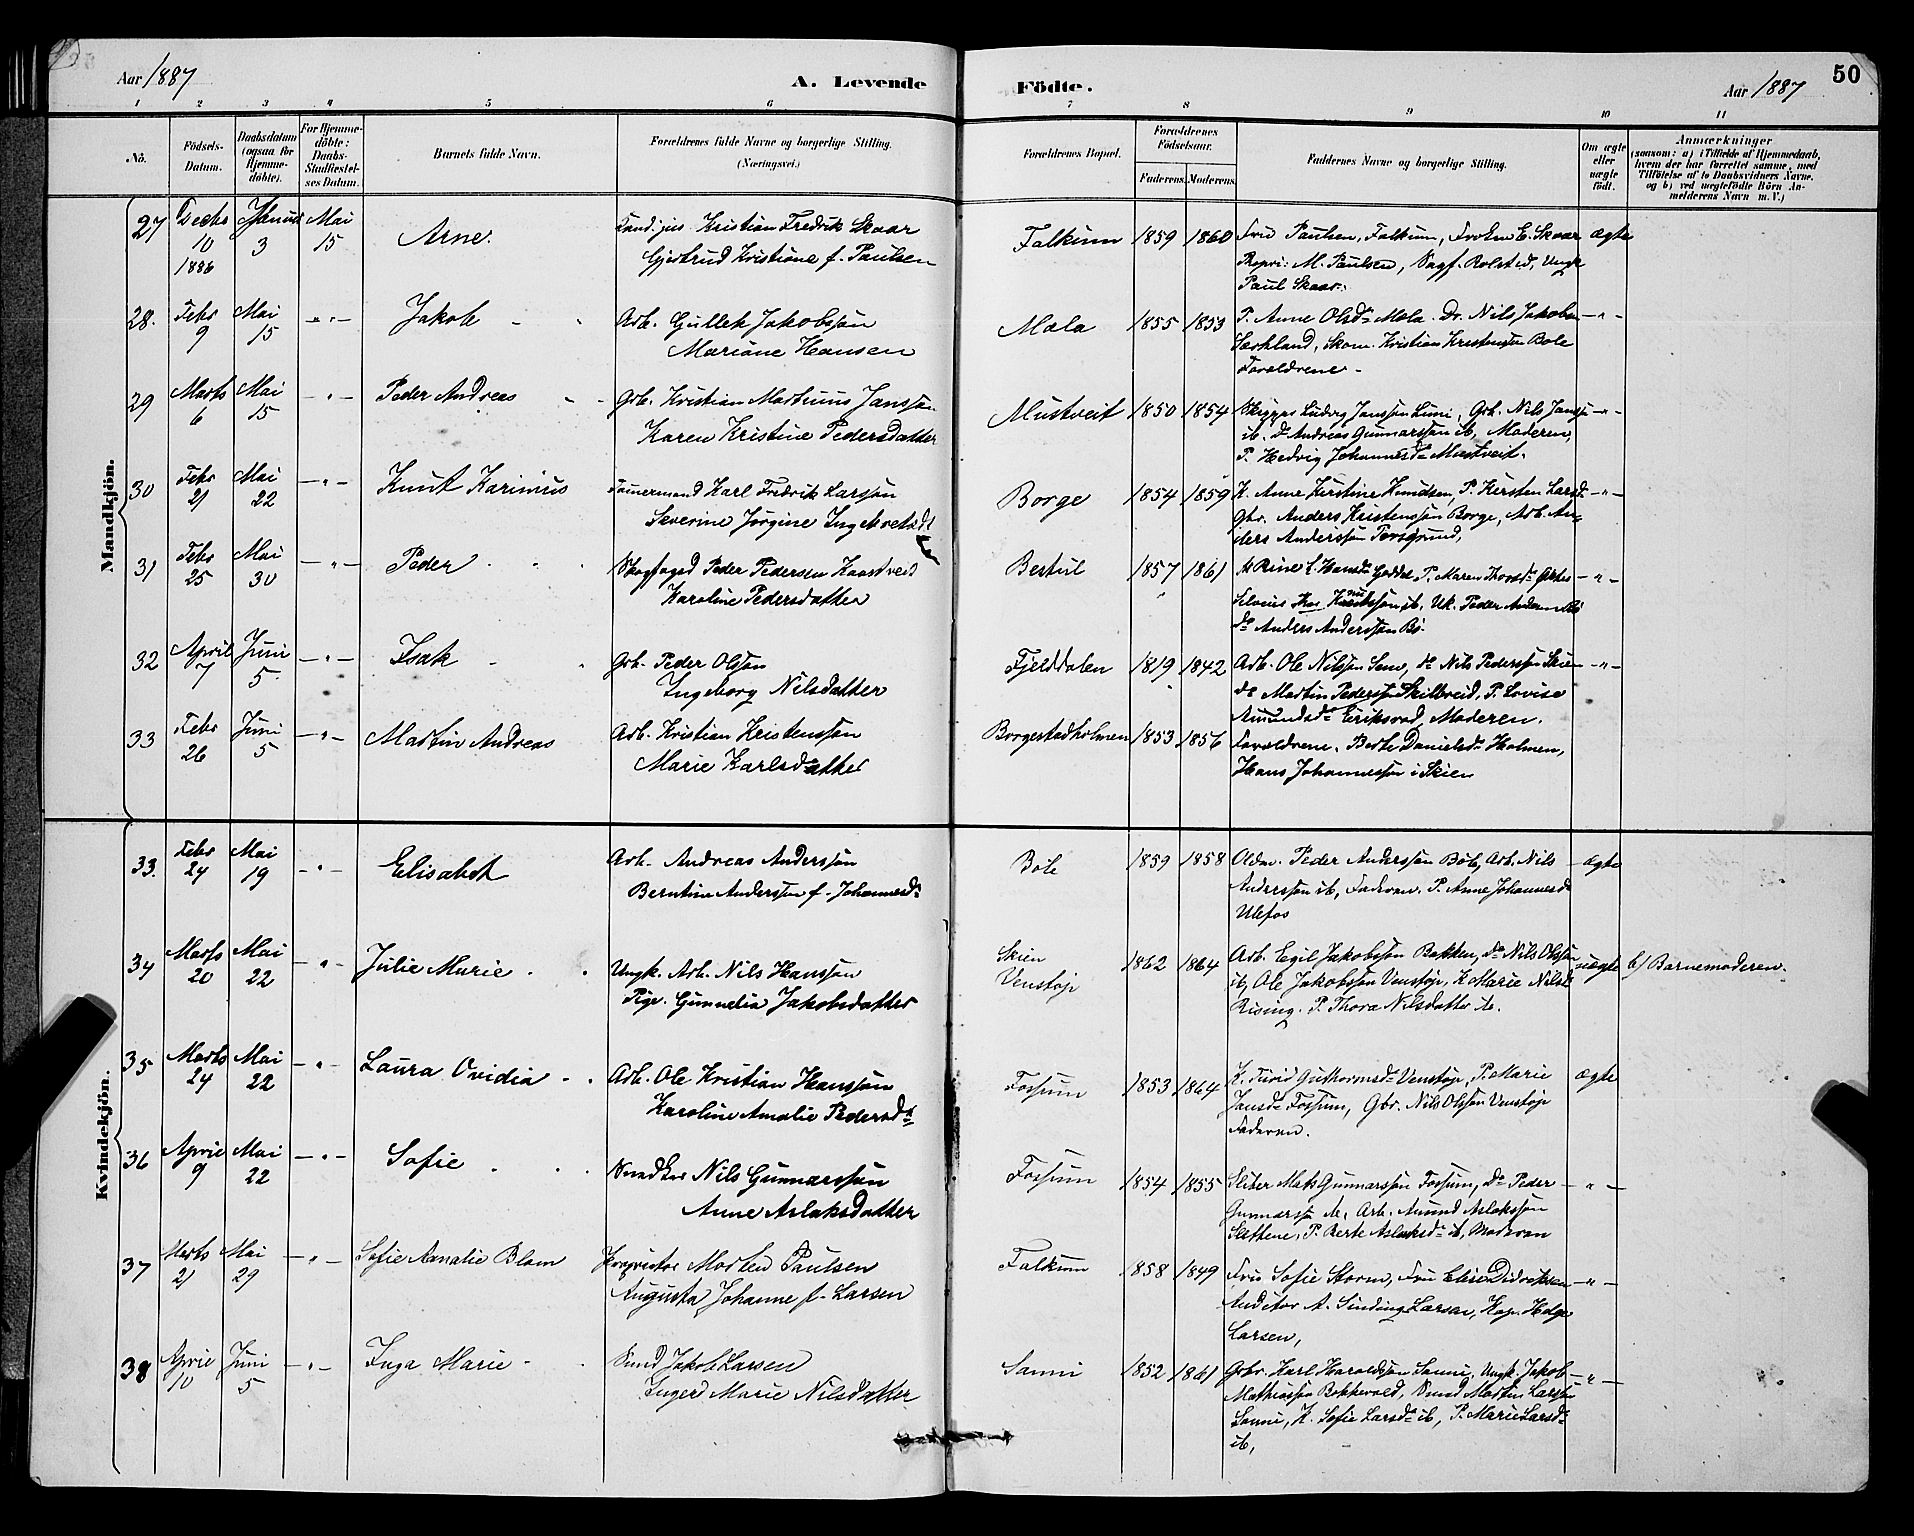 Aar 1887
A. Levende
Födte.
Aar 1887
50
1 2 3 4 5 6 7 8 9 10 11
No.
Födsels-Datum.
Daabsdatum (ogsaa for Hjemme-döbte).
For Hjemme-döbte: Daabs-Stadfæstel-ses Datum.
Barnets fulde Navn.
Forældrenes fulde Navne og borgerlige Stilling.
(Næringsvei.)
Forældrenes Bopæl.
Forældrenes Födselsaar.
Faderens. Moderens.
Faddernes Navne og borgerlige Stilling.
Om ægte eller uægte födt.
Anmærkninger
(saasom: a) i Tilfælde af Hjemmedaab, hvem der har forrettet samme, med Tilföielse af to Daabsvidners Navne, og b) ved uægtefödte Börn An-melderens Navn m. V.)
Mandkjön.
27 Decbr 10 1886 Januar 3 Mai 15 Arne. Kand. jur. Kristian Fredrik Skaar
Gjertrud Kristiane f. Paulsen
Falkum 1859 1860 Fru Paulsen, Falkum, Frøken E. Skaar ægte
Propr: M. Paulsen, Sagf. Rolsted, Ungk.
Paul Skaar.
28. Febr 9 Mai 15 —"— Jakob Arb. Gullek Jakobssøn
Mariane Hansen
Mæla 1855 1853 P. Anne Olsd. Mæla. Dr. Nils Jakobsen —"—
Særkland, Skom. Kristian Kristensen Bøle
Forældrene
29 Marts 6 Mai 15 —"— Peder Andreas Gbr. Kristian Martinius Janssøn
Karen Kristine Pedersdatter
Mustveit 1850 1854 Skipper Ludvig Janssøn Lunu, Gbr. Nils Janssøn —"—
ib. do Andreas Gunnarssøn ib, Moderen,
P. Hedvig Johannesd. Mustveit.
30 Febr 21 Mai 22 —"— Knut Karinius Tømmermand Karl Fredrik Larssøn
Severine Jørgine Ingebretsdtr
Borge 1854 1859 K. Anne Kirstine Knudsen, P. Kirsten Larsd. —"—
Gbr. Anders Kristenssøn Borge, Arb. An-
ders Anderssøn Porsgrund,
31 Febr 25 Mai 30 —"— Peder Skogfoged Peder Pedersen Kaastveid
Karoline Pedersdatter
Bestul 1857 1861 P. Maren Thorsd.
ib, Uk. Peder Andersen Bø
do Anders Anderssøn Bø.
32 April 7 Juni 5 —"— Isak Gbr. Peder Olsøn
Ingeborg Nilsdatter
Fjelddalen 1819 1842 Arb. Ole Nilssøn Sem, do Nils Pederssøn Skien —"—
do Martin Pederssøn Skilbreid, P. Lovise
Amundsd. Eriksrød, Moderen.
33 Febr 26 Juni 5 —"— Martin Andreas Arb. Kristian Kristenssøn
Marie Karlsdatter
Borgestadholmen 1853 1856 Forældrene, Berte Danielsd. Holmen,
Hans Johannessøn i Skien
Kvindekjön.
33. Febr 24 Mai 19 —"— Elisabet Arb. Andreas Anderssøn
Berntine Anderssøn f. Johannesd.
Bøle 1859 1858 Oldm. Peder Anderssøn Bøle, Arb. Nils ægte
Anderssøn ib, Faderen. P. Anne Johannesd.
Ulefos
34 Marts 20 Mai 22 —"— Julie Marie Ungk. Arb. Nils Hanssøn
Pige. Gunnelia Jakobsdatter
Skien
Venstøp 1862 1864 Arb. Egil Jakobssøn Bakken, do Nils Olssøn uægte b) Barnemoderen.
ib, Ole Jakobssøn Venstøp, K. Marie Nilsd.
Rising. P. Thora Nilsdatter ib.
35 Marts 24 Mai 22 —"— Laura Ovidia Arb. Ole Kristian Hanssøn
Karoline Amalie Pedersd.
Fossum 1853 1864 K. Turid Guttormsd. Venstøp, P. Marie ægte
Jansd. Fossum, Gbr. Nils Olssøn Venstøp
Faderen.
36 April 9 Mai 22 —"— Sofie Snedker Nils Gunnarssøn
Anne Aslaksdatter
Fossum 1854 1855 Sliber Mats Gunnarssøn Fossum, do Peder —"—
Gunnarssøn ib, Arb. Amund Aslakssøn
Slettene, P. Berte Aslaksd. ib, Moderen
37 Marts 21 Mai 29 —"— Sofie Amalie Blom Proprietær Morten Paulsen
Augusta Johanne f. Larsen
Falkum 1858 1849 Fru Sofie Storm, Fru Elise Didriksen —"—
Auditør A. Sinding Larsen, Kap. Helge
Larsen,
38 April 10 Juni 5 —"— Inga Marie Smed Jakob Larsen
Ingerd Marie Nilsdatter
Sanni 1852 1861 Gbr. Karl Haraldssøn Sanni, Ungk. Jakob —"—
Mathiassøn Bakkevold, Smed Martin Larssøn
Sanni, K. Sofie Larsd. ib, P. Marie Larsd.
ib,